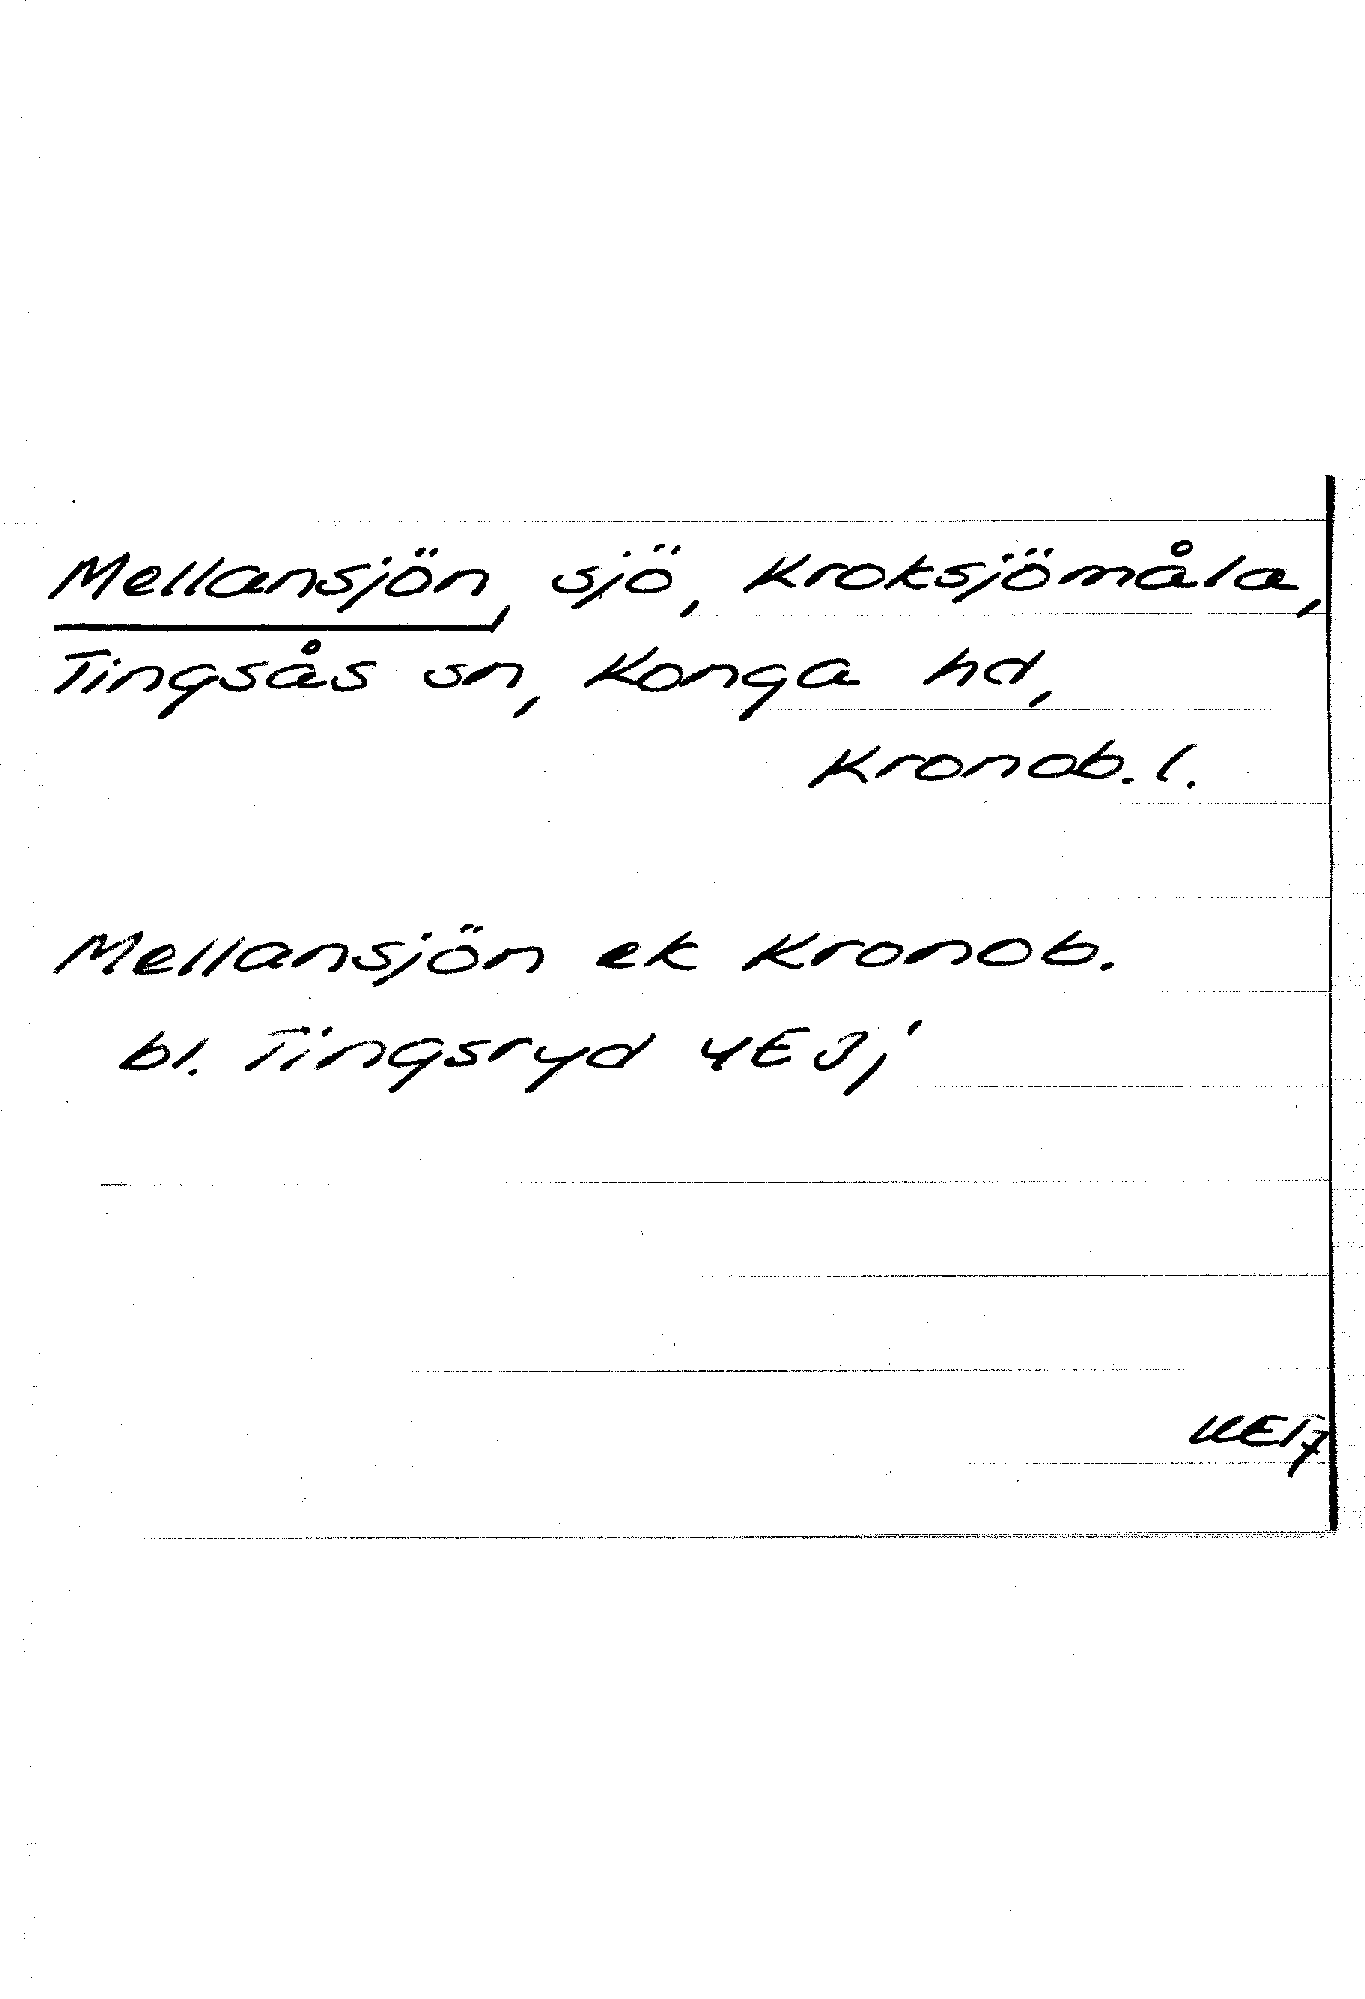 Mellansjön, sjö, Kroksjömåla,
Tingsås sn, Konga hd,
Kronob. l.
Mellansjön ek Kronob.
bl. Tingsryd 4E 3j